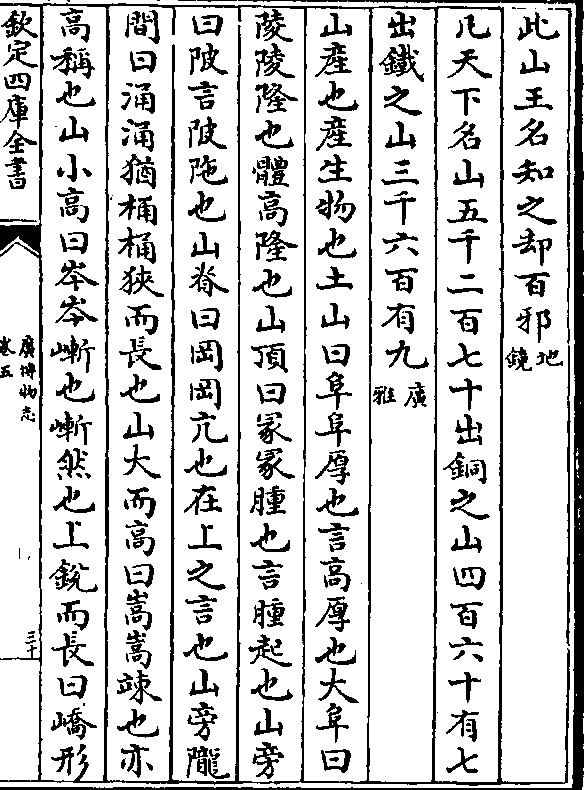 此山王名知之却百邪地鏡
凡天下名山五千二百七十出銅之山四百六十有七
出鐵之山三千六百有九廣雅
山産也産生物也土山曰阜阜厚也言高厚也大阜曰
陵陵隆也體高隆也山頂曰冢冢腫也言腫起也山旁
曰陂言陂陁也山脊曰岡岡亢也在上之言也山旁隴
間曰涌涌猶桶桶狹而長也山大而高曰嵩嵩竦也亦
高稱也山小高曰岑岑嶃也嶃然也上銳而長曰嶠形
欽定四庫全書
廣博物志
卷五
三十